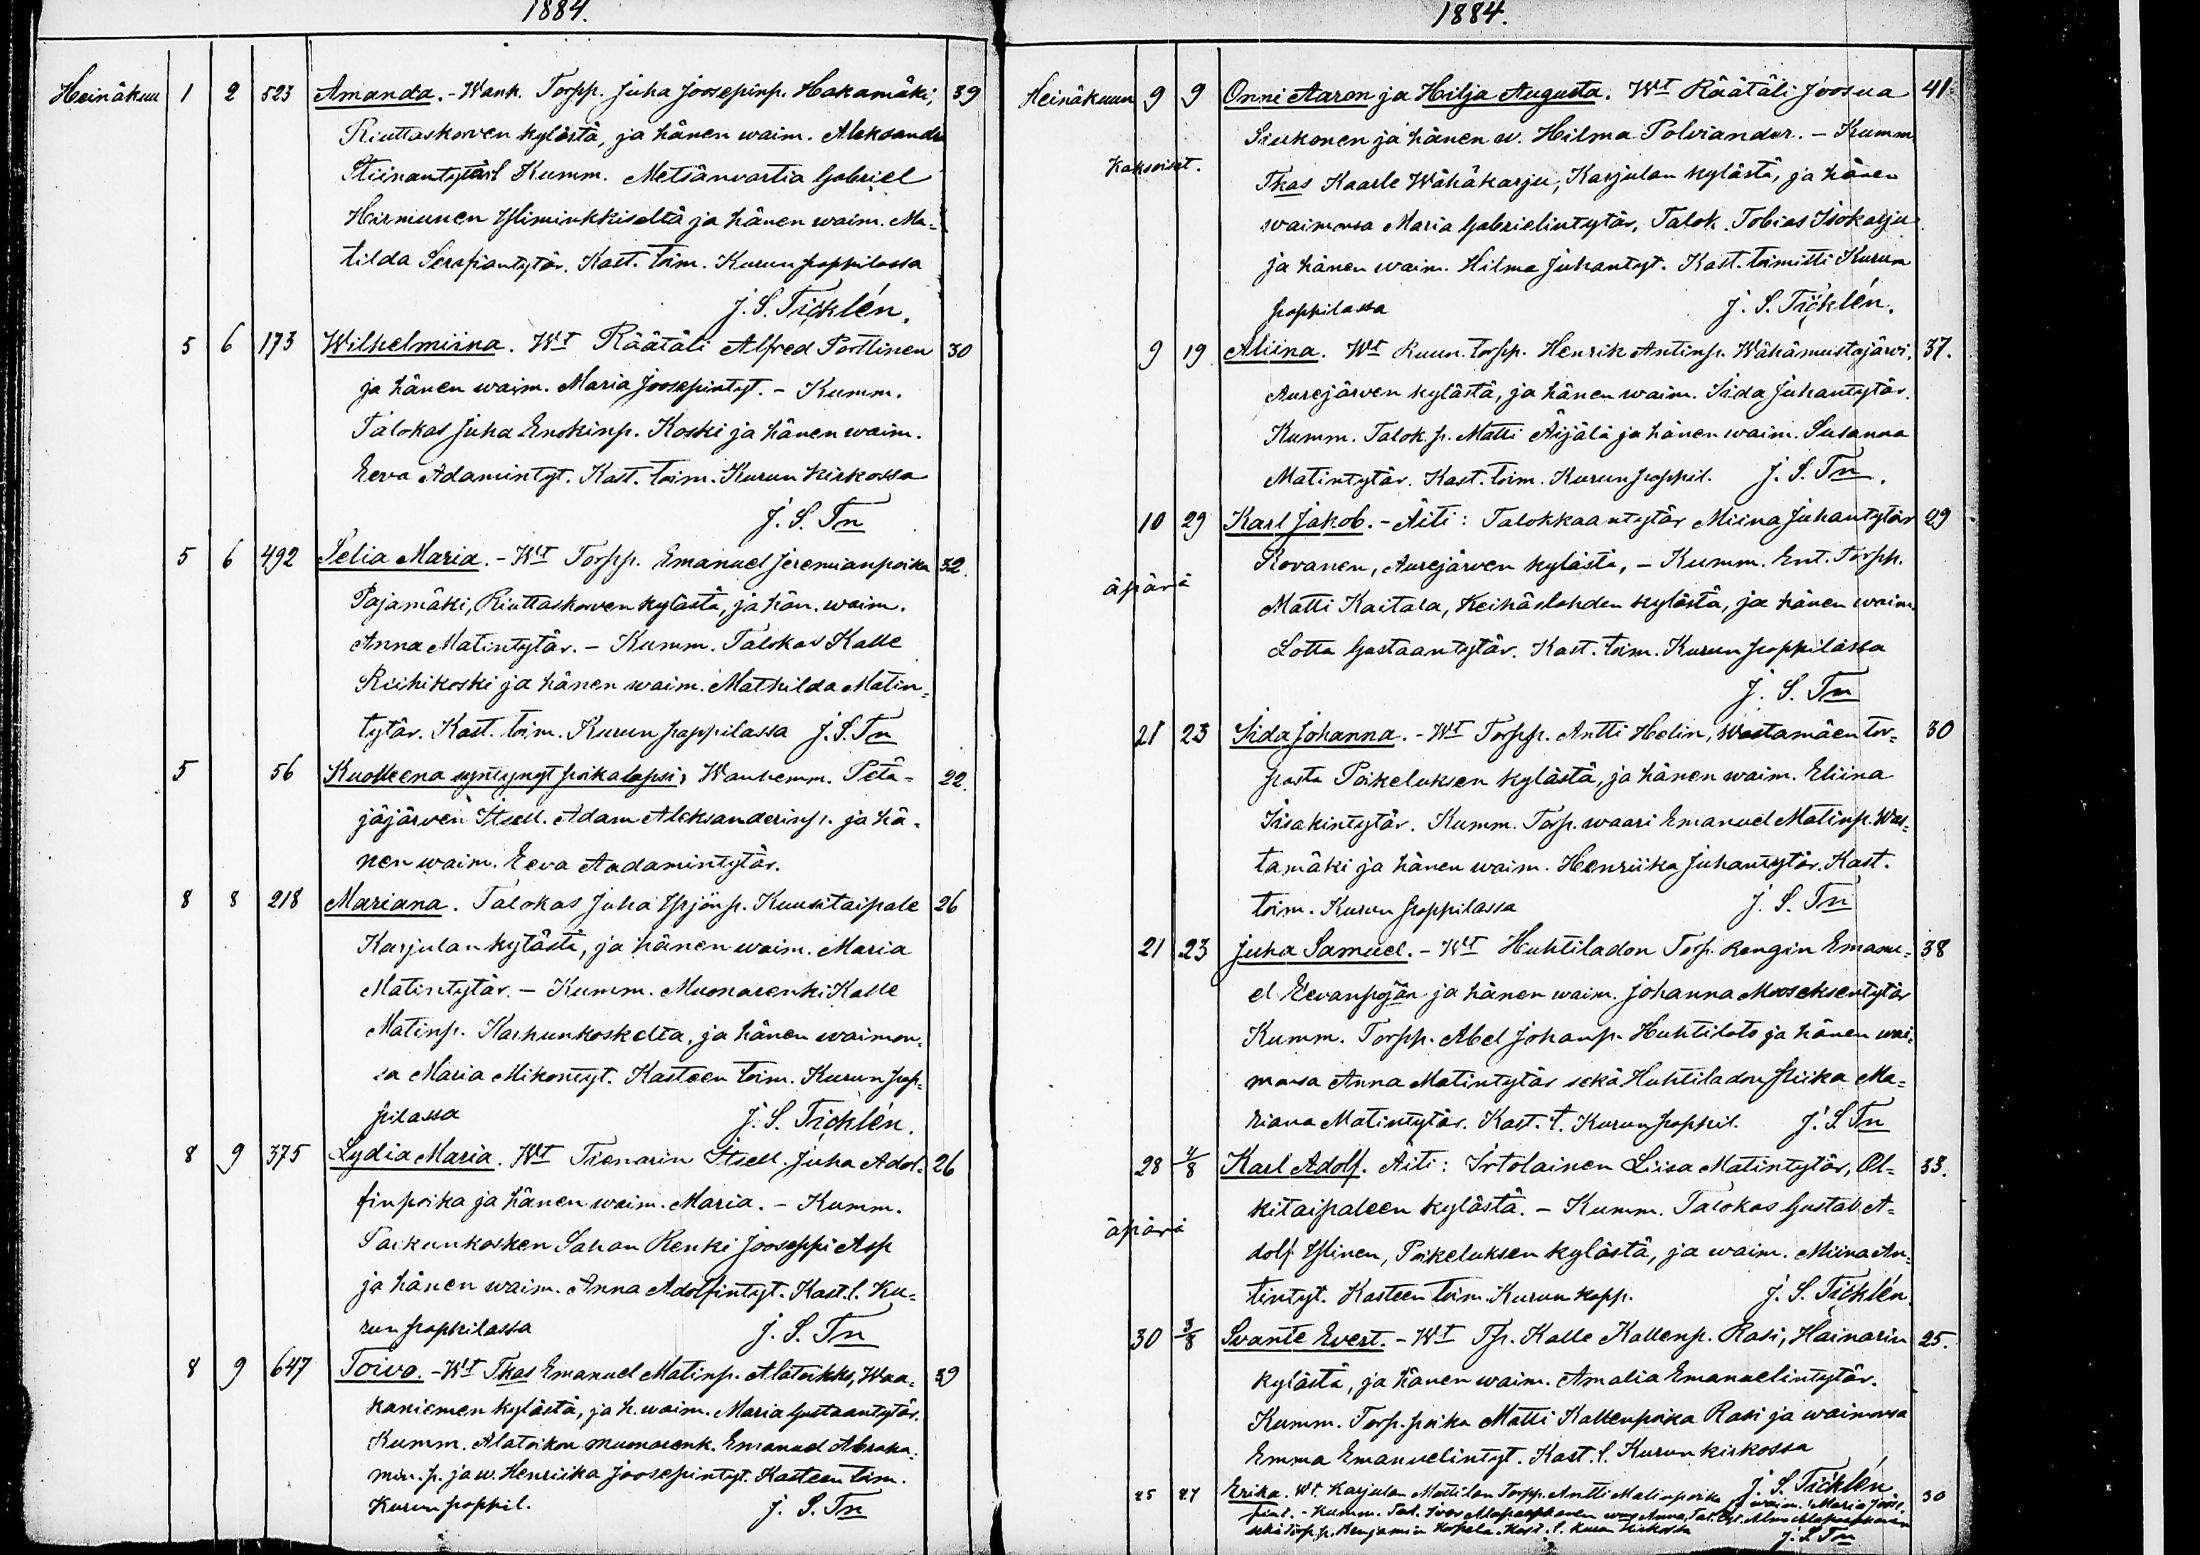 1884.
Heinäkuu 1 2 523 Amanda. - Wanh. Torpp. Juha Joosepinp. Hakamäki, 39
Riuttaskorven kylästä, ja hänen waim. Aleksandra
Stiinantytär Kumm. Metsänvartia Gabriel
Hirmunen Ylimmukkiselta ja hänen waim. Ma-
tilda Serafiantytär. Kast. toim. Kurun pappilassa
J. S. Ticklén.
5 6 173 Wilhelmiina. Wt Räätäli Alfred Porttinen 30
ja hänen waim. Maria Joosepintyt. - Kumm.
Talokas Juha Enokinp. Koski ja hänen waim.
Eeva Adamintyt. Kast. toim. Kurun kirkossa
J. S. Tn
5 6 492 Selia Maria. - Wt Torpp. Emanuel Jeremianpoika 32.
Pajamäki, Riuttaskorven kylästä, ja hän. waim.
Anna Matintytär. - Kumm. Talokas Kalle
Riihikoski ja hänen waim. Mathilda Matin=
tytär. Kast. toim. Kurun pappilassa J. S. Tn
5 56 Kuolleena syntynyt poikalapsi, Wanhemm. Petä- 22.
jäjärven Itsell. Adam Aleksanderinp. ja hä-
nen waim. Eeva Aadamintytär.
8 8 218 Mariana. Talokas Juha Yrjönp. Kuusitaipale 26
Karjulan kylästä, ja hänen waim. Maria
Matintytär. - Kumm. Muonarenki Kalle
Matinp. Karhunkoskelta, ja hänen waimon-
sa Maria Mikontyt. Kasteen toim. Kurun pap-
pilassa J. S. Ticklén.
8 9 375 Lydia Maria. Wt Tienarin Itsell. Juha Adol- 26
finpoika ja hänen waim. Maria. - Kumm.
Parkunkosken Sahan Renki Jooseppi Asp
ja hänen waim. Anna Adolfintyt. Kast. t. Ku-
run pappilassa J. S. Tn
8 9 647 Toivo. - Wt Tkas Emanuel Matinp. Alatoikko, Waa- 39
kaniemen kylästä, ja h. waim. Maria Gustaantytär.
Kumm. Alatoikon muonarenk. Emanuel Abraha-
min. p. ja w. Henriika Joosepintyt. Kasteen toim.
Kurun pappil. J. S. Tn
1884.
Heinäkuun 9 9 Onni Aaron ja Hilja Augusta. Wt Räätäli Joosua 41
Siukonen ja hänen w. Hilma Polviander. - Kumm.
Kaksoiset. Tkas Kaarle Wähäkarju, Karjulan kylästä, ja hänen
waimonsa Maria Gabrielintytär, Talok. Tobias Isokarju
ja hänen waim. Hilma Juhantyt. Kast. toimitti Kurun
pappilassa J. S. Ticklén.
9 19 Aliina. Wt Ruun. torpp. Henrik Antinp. Wähämustajärvi, 37.
Aurejärven kylästä, ja hänen waim. Iida Juhantytär.
Kumm. Talok. p. Matti Äijälä ja hänen waim. Susanna
Matintytär. Kast. toim. Kurun pappil. J. S. Tn.
10 29 Karl Jakob. - Äiti: Talokkaantytär Miina Juhantytär 29
Rovanen, Aurejärven kylästä, - Kumm. Ent. Torpp.
äpärä Matti Kaitala, Keihäslahden kylästä, ja hänen waim.
Lotta Gustaantytär. Kast. toim. Kurun pappilassa
J. S. Tn
21 23 Iida Johanna. - Wt Torpp. Antti Helin, Wastamäen tor= 30
pasta Poikeluksen kylästä, ja hänen waim. Eliina
Iisakintytär. Kumm. Torp. waari Emanuel Matinp. Was=
tamäki ja hänen waim. Henriika Juhantytär. Kast.
toim. Kurun pappilassa J. S. Tn
21 23 Juha Samuel. - Wt Huhtiladon Torp. Rengin Emanu= 38
el Eevanpojan ja hänen waim. Johanna Mooseksentytär
Kumm. Torpp. Abel Johanp. Huhtilato ja hänen wai-
monsa Anna Matintytär sekä Huhtiladon piika Ma=
riana Matintytär. Kast. t. Kurun pappil. J. S Tn
28 2/8 Karl Adolf. Äiti: Irtolainen Liisa Matintytär, Ol= 33.
kitaipaleen kylästä. - Kumm. Talokas Gustav A=
äpärä dolf Ylinen, Poikeluksen kylästä, ja waim. Miina An-
tintyt. Kasteen toim. Kurun kapp. J. S. Ticklén.
30 3/8 Svante Evert. - Wt Tp. Kalle Kallenp. Rasi, Hainarin 25.
kylästä, ja hänen waim. Amalia Emanuelintytär.
Kumm. Torp. poika Matti Kallenpoika Rasi ja waimonsa
Emma Emanuelintyt. Kast. t. Kurun kirkossa
J. S. Ticklén
25 27 Erika. Wt. Karjulan Mattilan Torpp. Antti Matinpoika ja waim. Maria Joose- 30
pint. - Kumm. Tal. Iivar
sekä torp. p. Benjamin Kopala. Kast. t. Kurun kirkossa
J. S Tn